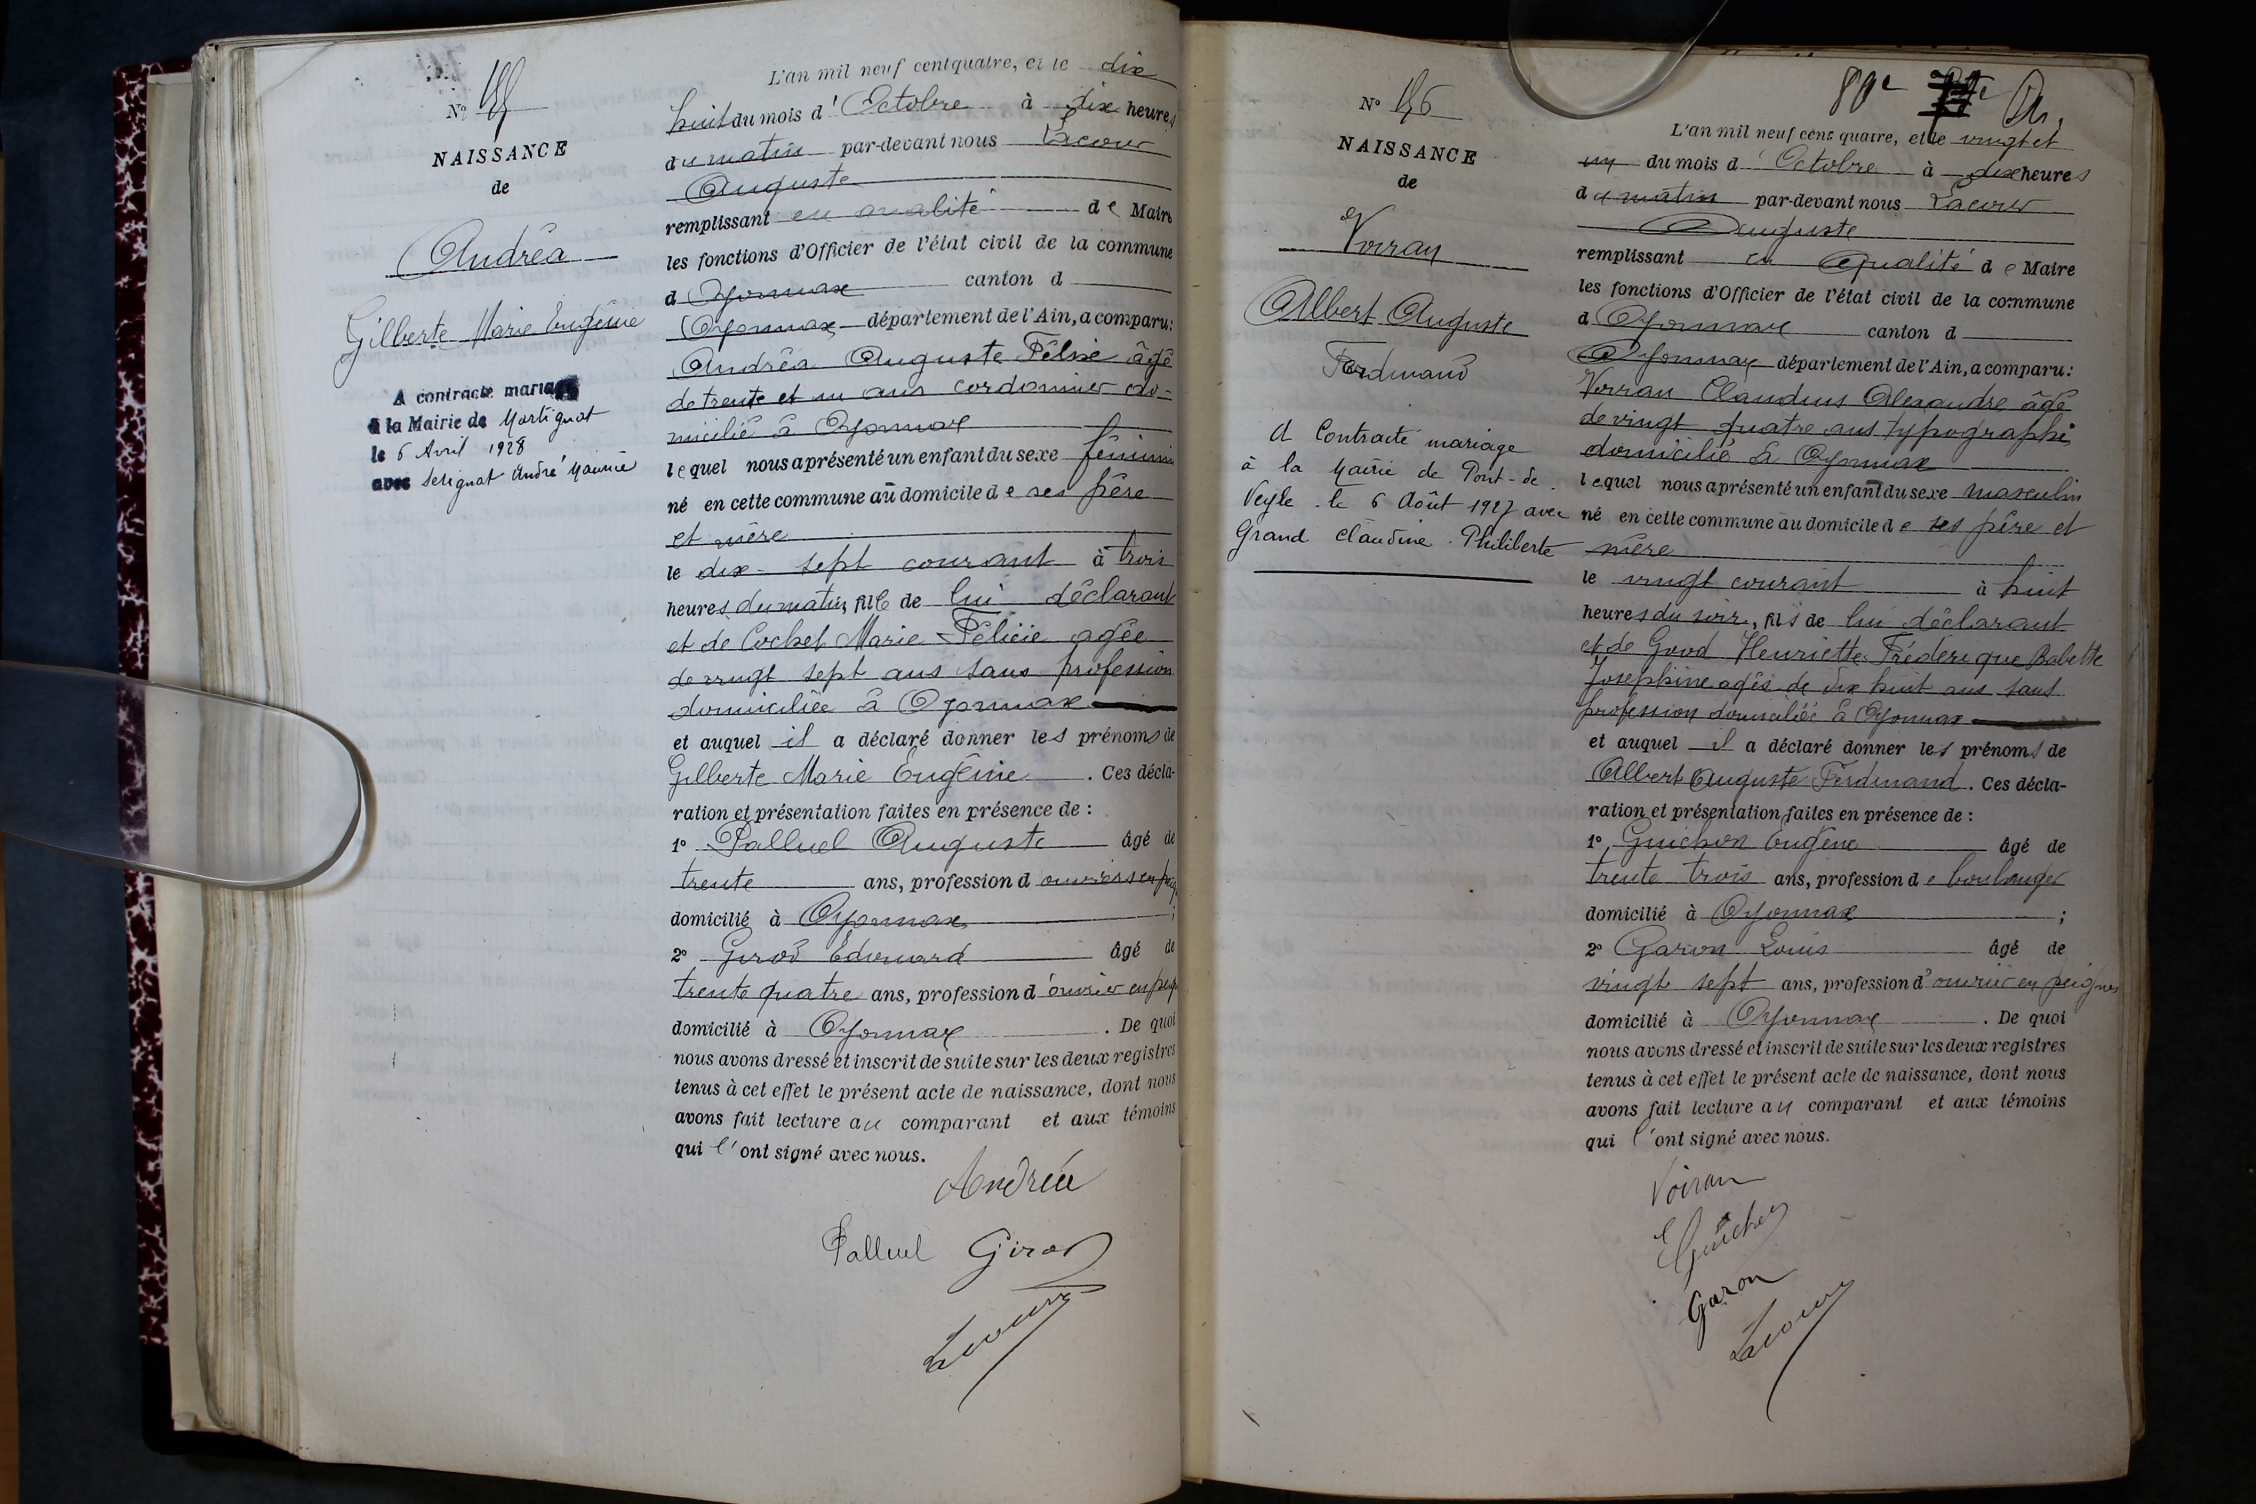 Nº 155
NAISSANCE
de
Andréa
Gilberte Marie Eugénie
A contracté mariage
à la Mairie de Martignat
le 6 Avril 1928
avec Serignat André Maurice
L'an mil neuf cent quatre, et le dix
huit du mois d'Octobre à dix heures
du matin par-devant nous Lacour
Auguste
remplissant en qualité de Maire
les fonctions d'Officier de l'état civil de la commune
d Oyonnax canton d
Oyonnax département de l'Ain, a comparu:
Andréa Auguste Félix âgé
de trente et un ans cordonnier do-
micilié à Oyonnax
lequel nous a présenté un enfant du sexe féminin
né en cette commune au domicile de ses père
et mère
le dix-sept courant à trois
heures du matin, fille de lui déclarant
et de Cochet Marie Félicie agée
de vingt sept ans sans profession
domiciliée à Oyonnax
et auquel il a déclaré donner les prénoms de
Gilberte Marie Eugénie. Ces décla-
ration et présentation faites en présence de :
1º Palluel Auguste âgé de
trente ans, profession d ouvrier en
domicilié à Oyonnax ;
2º Girod Edouard âgé de
trente quatre ans, profession d'ouvrier en
domicilié à Oyonnax . De quoi
nous avons dressé et inscrit de suite sur les deux registres
tenus à cet effet le présent acte de naissance, dont nous
avons fait lecture au comparant et aux témoins
qui l'ont signé avec nous.
Andréa
Palluel Girod
Lacour
89e
Nº 156
NAISSANCE
de
Voiran
Albert Auguste
Ferdinand
A Contracté mariage
à la Mairie de Pont-de-
Veyle le 6 Août 1927 avec
Grand Claudine Philiberte
L'an mil neuf cent quatre, et le vingt et
un du mois d'Octobre à dix heures
du matin par-devant nous Lacour
Auguste
remplissant en qualité de Maire
les fonctions d'Officier de l'état civil de la commune
d Oyonnax canton d
Oyonnax département de l'Ain, a comparu:
Voiran Claudius Alexandre âgé
de vingt quatre ans typographe
domicilié à Oyonnax
lequel nous a présenté un enfant du sexe masculin
né en cette commune au domicile de ses père et
mère
le vingt courant à huit
heures du soir, fils de lui déclarant
et de Good Henriette Fréderique Babette
Josephine agée de dix huit ans sans
profession domiciliée à Oyonnax
et auquel il a déclaré donner les prénoms de
Albert Auguste Ferdinand. Ces décla-
ration et présentation faites en présence de :
1º Guichon Eugène âgé de
trente trois ans, profession de boulanger
domicilié à Oyonnax ;
2º Garon Louis âgé de
vingt sept ans, profession d'ouvrier en peignes
domicilié à Oyonnax . De quoi
nous avons dressé et inscrit de suite sur les deux registres
tenus à cet effet le présent acte de naissance, dont nous
avons fait lecture au comparant et aux témoins
qui l'ont signé avec nous.
Voiran
E Guichon
Garon
Lacour